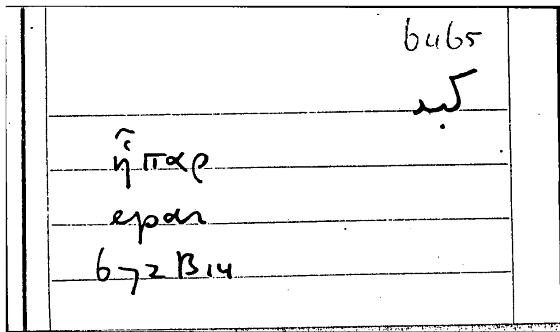 6465
كبد
ἧπαρ
epar
672 B14